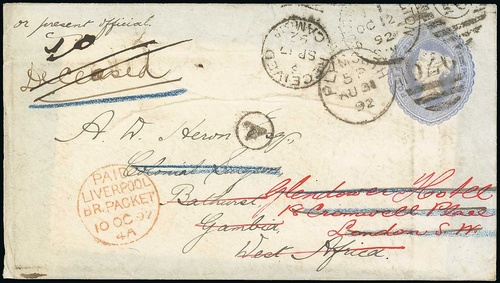 or present official.
To
Deceased
A. W. Heron Esqr.,
Colonial Surgeon
Bathurst
Gambia
West Africa.
Glendower Hotel
18 Cromwell Place
London S.W.
PAID
LIVERPOOL
BR. PACKET
10 OC 92
4A
RECEIVED
SP 17
PLYMOUTH
AU 31
92
OC 12
92
620
A